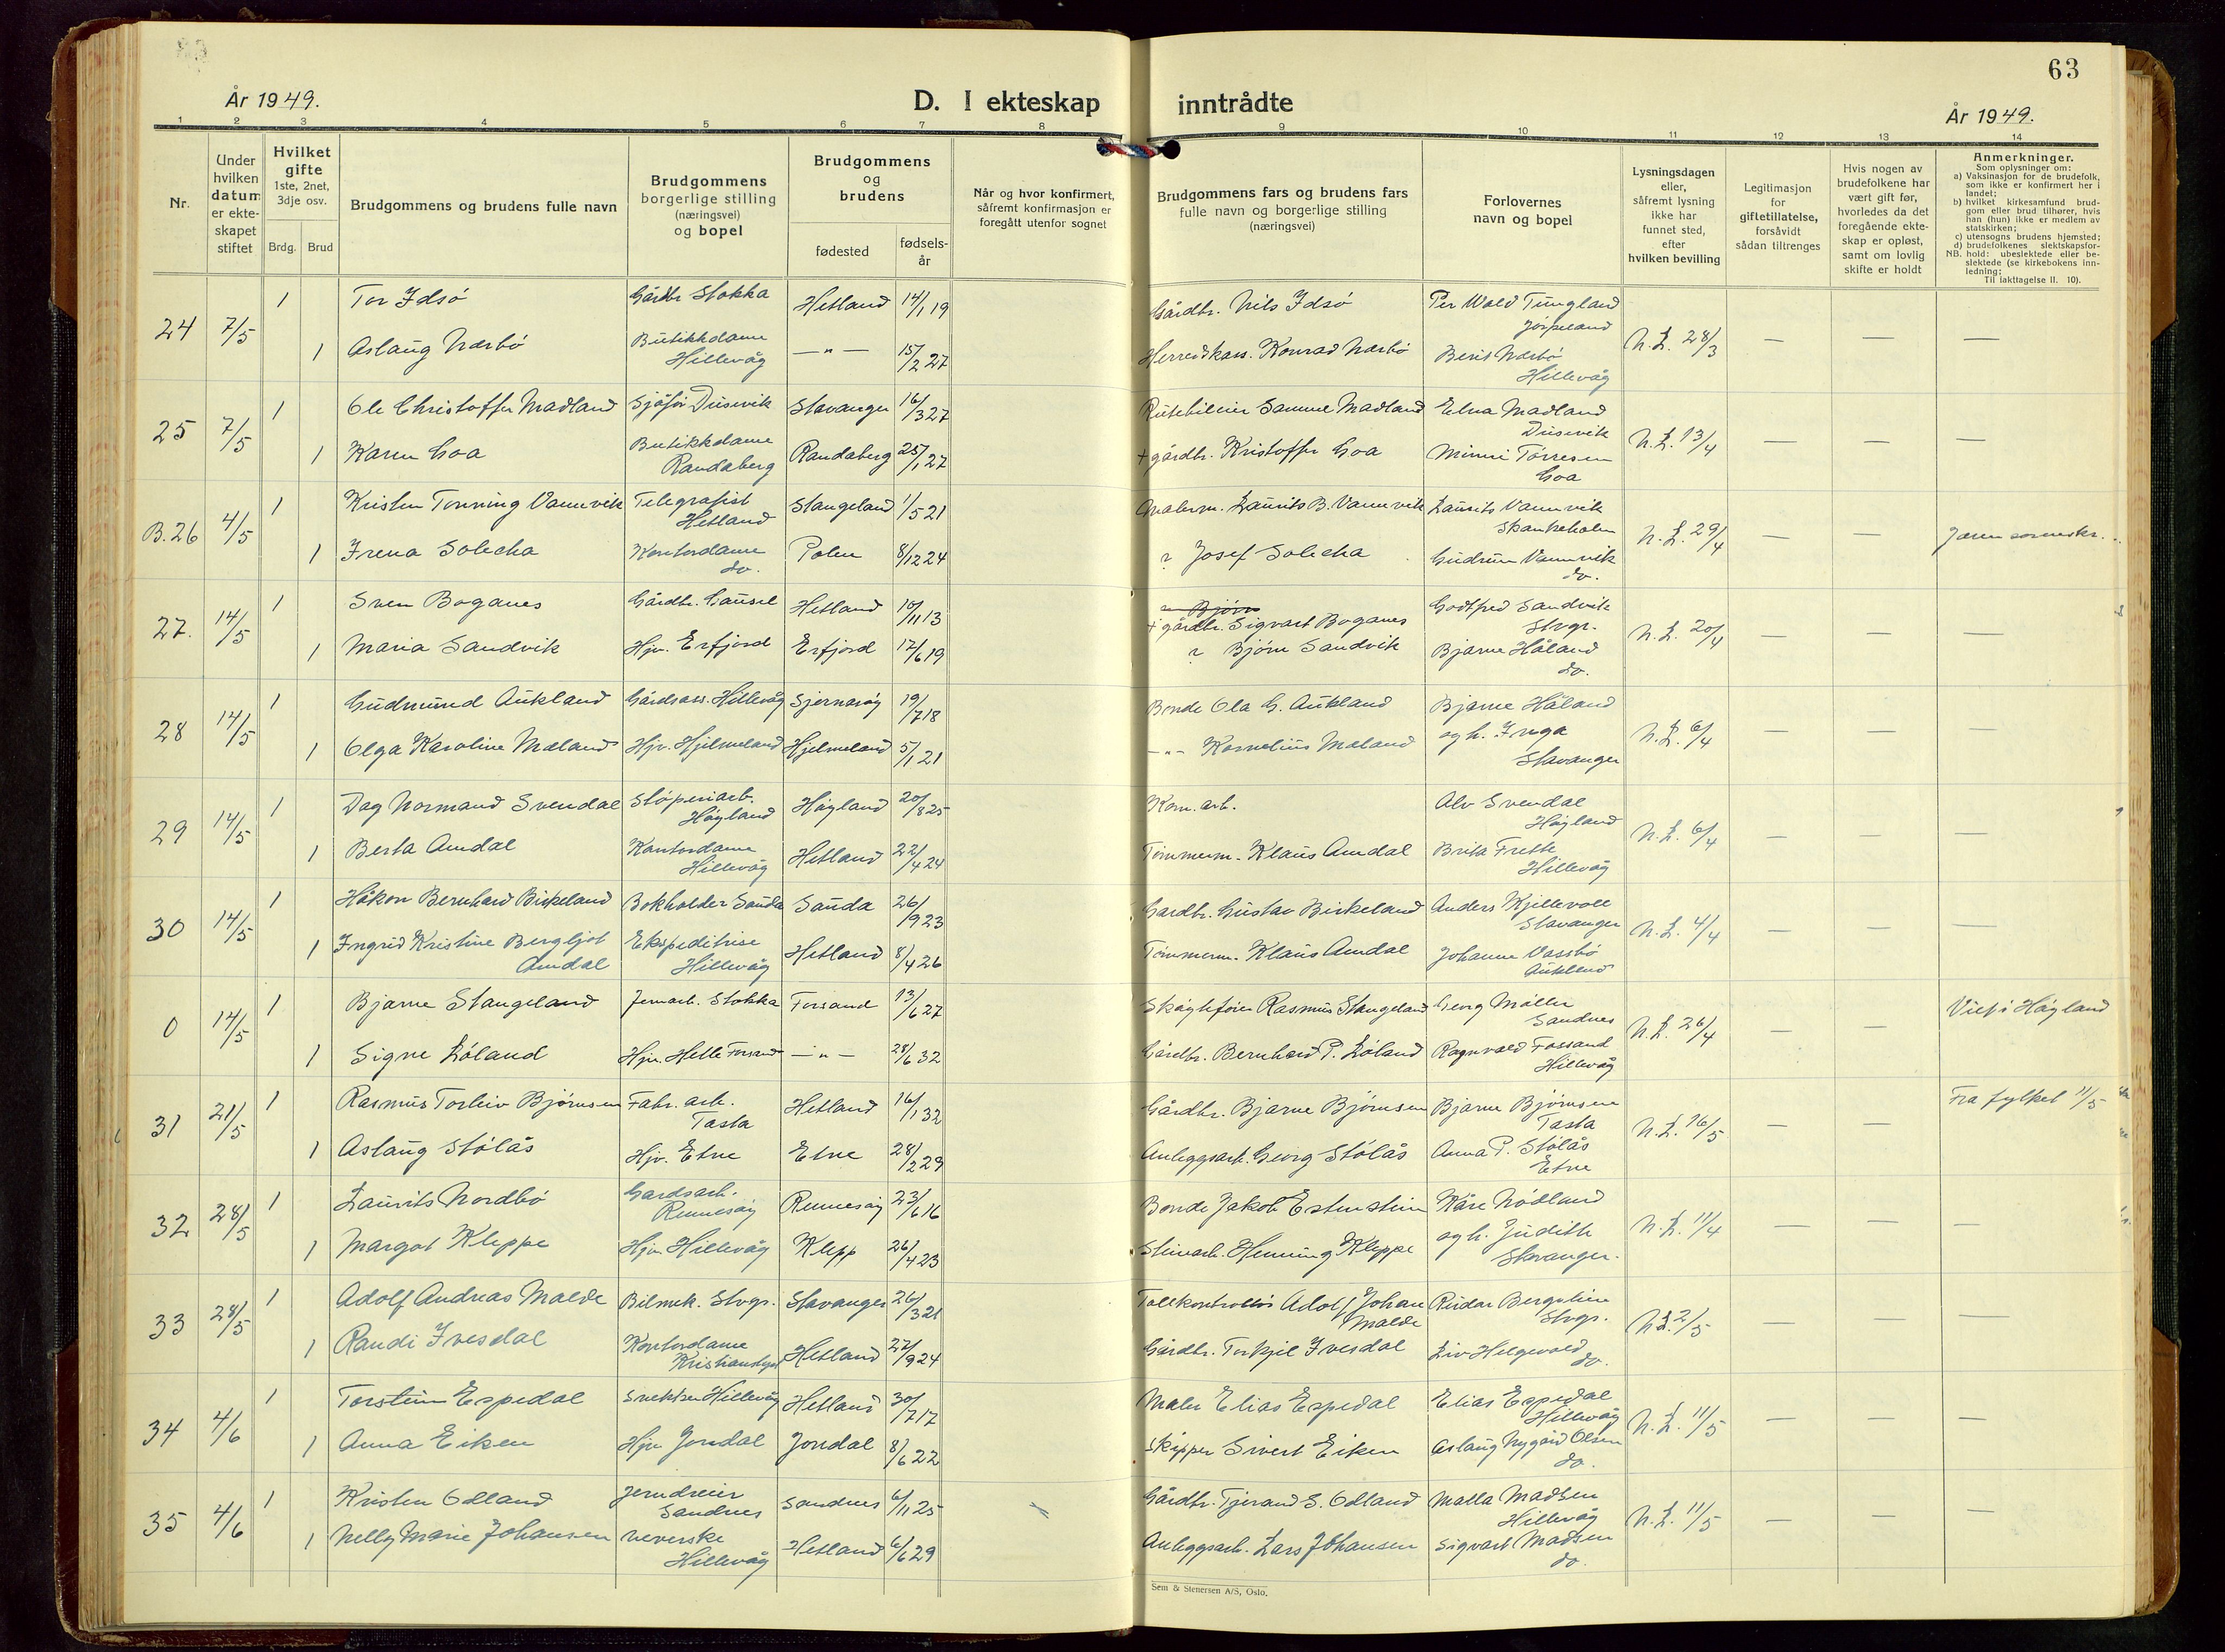 63
År 1949.
D. I ekteskap inntrådte
År 1949.
1 2 3 4 5 6 7 8 9 10 11 12 13 14
Nr.
Under hvilken datum er ekte-skapet stiftet
Hvilket gifte
1ste, 2net, 3dje osv.
Brdg. Brud
Brudgommens og brudens fulle navn
Brudgommens borgerlige stilling (næringsvei) og bopel
Brudgommens og brudens
fødested
fødsels-år
Når og hvor konfirmert, såfremt konfirmasjon er foregått utenfor sognet
Brudgommens fars og brudens fars fulle navn og borgerlige stilling (næringsvei)
Forlovernes navn og bopel
Lysningsdagen eller, såfremt lysning ikke har funnet sted, efter hvilken bevilling
Legitimasjon for giftetillatelse, forsåvidt sådan tiltrenges
Hvis nogen av brudefolkene har vært gift før, hvorledes da det foregående ekte-skap er opløst, samt om lovlig skifte er holdt
Anmerkninger.
Som oplysninger om:
a) Vaksinasjon for de brudefolk, som ikke er konfirmert her i landet;
b) hvilket kirkesamfund brud-gom eller brud tilhører, hvis han (hun) ikke er medlem av statskirken;
c) utensogns brudens hjemsted;
d) brudefolkenes slektskapsfor-hold: ubeslektede eller be-slektede (se kirkebokens inn-ledning;
NB.
Til iakttagelse II. 10).
24 7/5 1 Tor Idsö Gårdbr. Stokka Hetland 14/1 19 Gårdbr. Nils Idsö Per Wold Tungland Jörpeland N.L. 28/3 — — —
1 Aslaug Nærbö Butikkdame Hillevåg —"— 15/2 27 Herredskass. Konrad Nærbö Berit Nærbö Hillevåg
25 7/5 1 Ole Christoffer Madland Sjåför Dusevik Stavanger 16/3 27 Rutebileier Samuel Madland Elna Madland Dusevik N.L. 13/4 — — —
1 Karen Goa Butikkdame Randaberg Randaberg 25/1 27 + gårdbr. Kristoffer Goa Minni Törresen Goa
B.26 4/5 1 Kristen Tonning Vannvik Telegrafist Hetland Stangeland 1/5 21 Malerm. Laurits B. Vannvik Laurits Vannvik Skankeholen N.L. 29/4 — — Jæren sorenskr.
1 Irena Solecha Kontordame do. Polen 8/12 24 ? Josef Solecha Gudrun Vannvik do.
27. 14/5 1 Sven Boganes Gårdbr. Gausel Hetland 10/11 13 ? Björn + gårdbr. Sigvart Boganes Godtfred Sandvik Stvgr. N.L. 20/4 — — —
1 Maria Sandvik Hjv. Erfjord Erfjord 17/6 19 ? Björn Sandvik Bjarne Håland do.
28 14/5 1 Gudmund Aukland Gårdsarb. Hillevåg Sjernaröy 19/7 18 Bonde Ola G. Aukland Bjarne Håland N.L. 6/4 — — —
1 Olga Karoline Mæland Hjv. Hjelmeland Hjelmeland 5/1 21 —"— Kornelius Mæland og h. Inga Stavanger
29 14/5 1 Dag Normand Svendal Stöperiarb. Höyland Höyland 20/8 25 Kom. arb. Alv Svendal Höyland N.L. 6/4 — — —
1 Berta Amdal Kontordame Hillevåg Hetland 22/4 24 Tömmerm. Klaus Amdal Brita Frette Hillevåg
30 14/5 1 Håkon Bernhard Birkeland Bokholder Sauda Sauda 26/9 23 Gardbr. Gustav Birkeland Anders Kjillevoll Stavanger N.L. 4/4 — — —
1 Ingrid Kristine Bergljot Amdal Ekspeditrise Hillevåg Hetland 8/4 26 Tömmerm. Klaus Amdal Johanne Vassbö Aukland
0 14/5 1 Bjarne Stangeland Jernarb. Stokka Forsand 13/6 27 Skögtefører Rasmus Stangeland Georg Möller Sandnes N.L. 26/4 — — Viet i Höyland
1 Signe Löland Hjv. Helle Forsand —"— 28/6 32 Gårdbr. Bernhard P. Löland Ragnvald Fossand Hillevåg
31 21/5 1 Rasmus Torleiv Björnsen Fabr. arb. Tasta Hetland 16/1 32 Gårdbr. Bjarne Björnsen Bjarne Björnsen Tasta N.L. 16/5 — — Fra fylket 11/5
1 Aslaug Stölås Hjv. Etne Etne 28/2 29 Anleggsarb. Georg Stölås Anna P. Stölås Etne
32 28/5 1 Laurits Nordbö Gardsarb. Rennesöy Rennesöy 23/6 16 Bonde Jakob Estenstein Kåre Nödland N.L. 11/4 — — —
1 Margot Kleppe Hjv. Hillevåg Klepp 26/4 23 Steinarb. Henning Kleppe og h. Judith Stavanger.
33 28/5 1 Adolf Andreas Malde Bilmek. Stvgr. Stavanger 26/3 21 Tollkontrollör Adolf Johan Malde Reidar Bergslien Stvgr. N.L. 2/5 — — —
1 Randi Ivesdal Kontordame Kristianslyst Hetland 27/9 24 Gårdbr. Torkjel Ivesdal Liv Helgevold do.
34 4/6 1 Torstein Espedal Snekker Hillevåg Hetland 30/7 17 Maler Elias Espedal Elias Espedal Hillevåg N.L. 11/5 — — —
1 Anna Eiken Hjv Jondal Jondal 8/6 22 Skipper Sivert Eiken Aslaug Nygård Olsen do.
35 4/6 1 Kristen Odland Jerndreier Sandnes Sandnes 6/11 25 Gårdbr. Tjerand S. Odland Malla Madsen Hillevåg N.L. 11/5 — — —
1 Nelly Marie Johansen Veverske Hillevåg Hetland 6/6 29 Anleggsarb. Lars Johansen Sigvart Madsen do.
Sem & Stenersen A/S, Oslo.